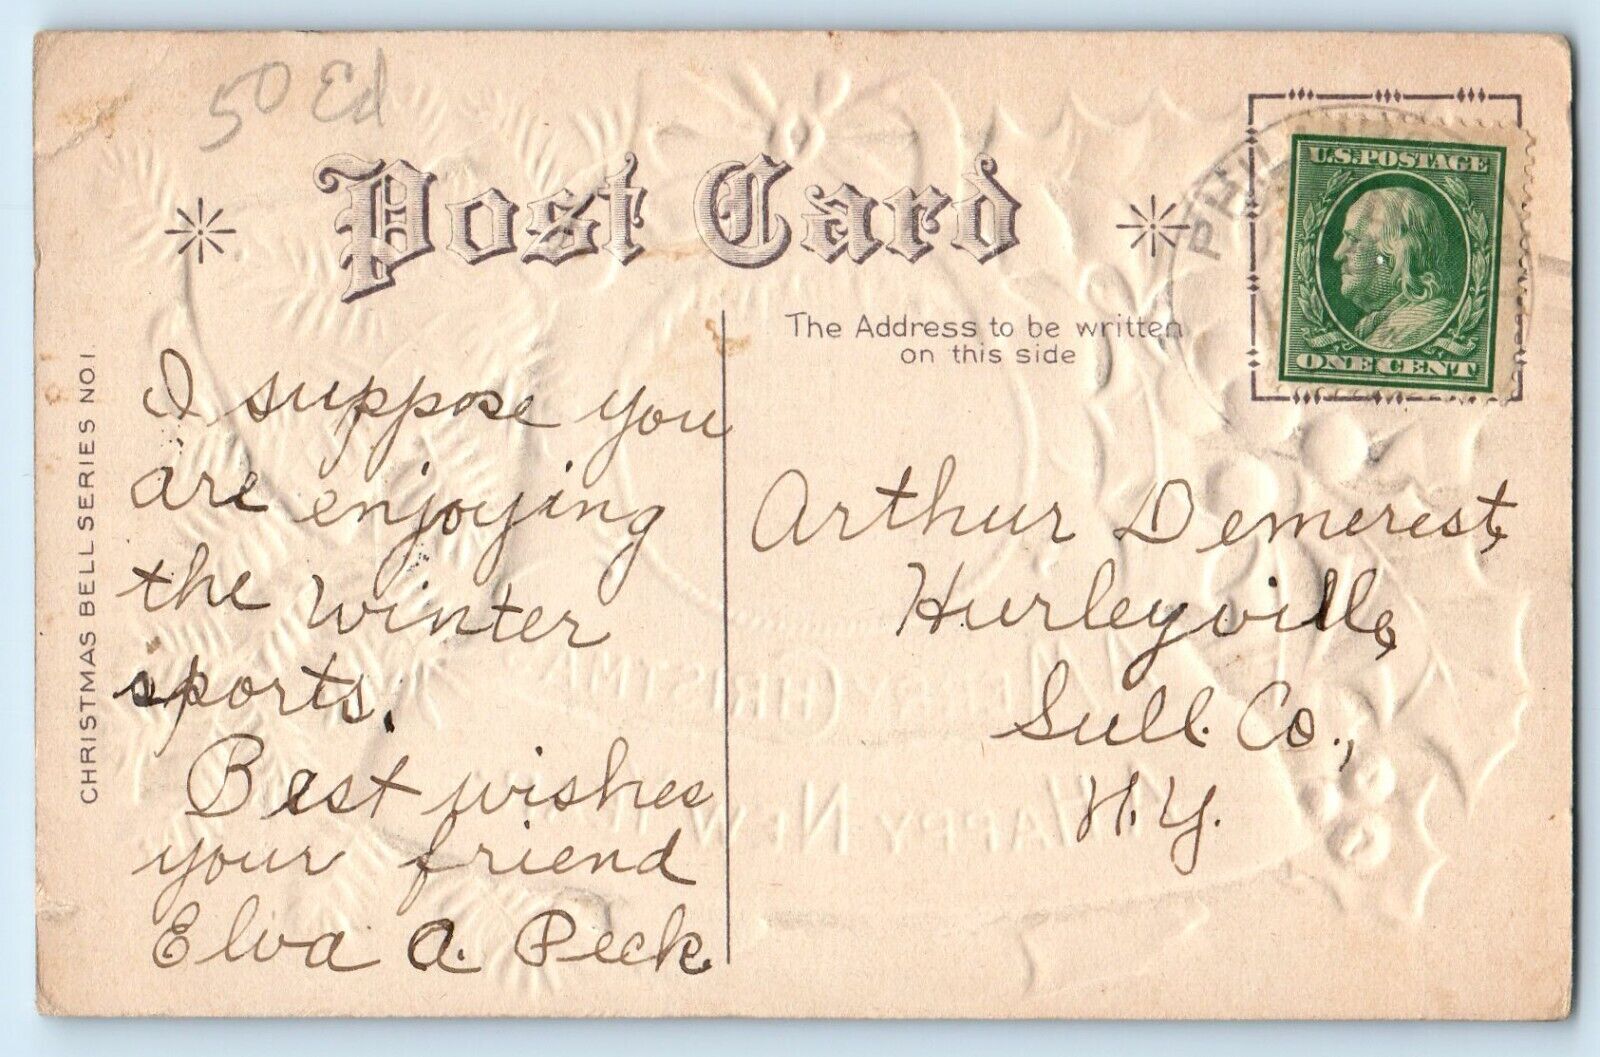 50 Ed
Post Card
U.S. POSTAGE
ONE CENT
PHIL
The Address to be written
on this side
CHRISTMAS BELL SERIES NO. 1.
I suppose you
are enjoying
the winter
sports.
Best wishes
your friend
Elva A. Peck
Arthur Demerest,
Hurleyville,
Sull. Co.,
N.Y.